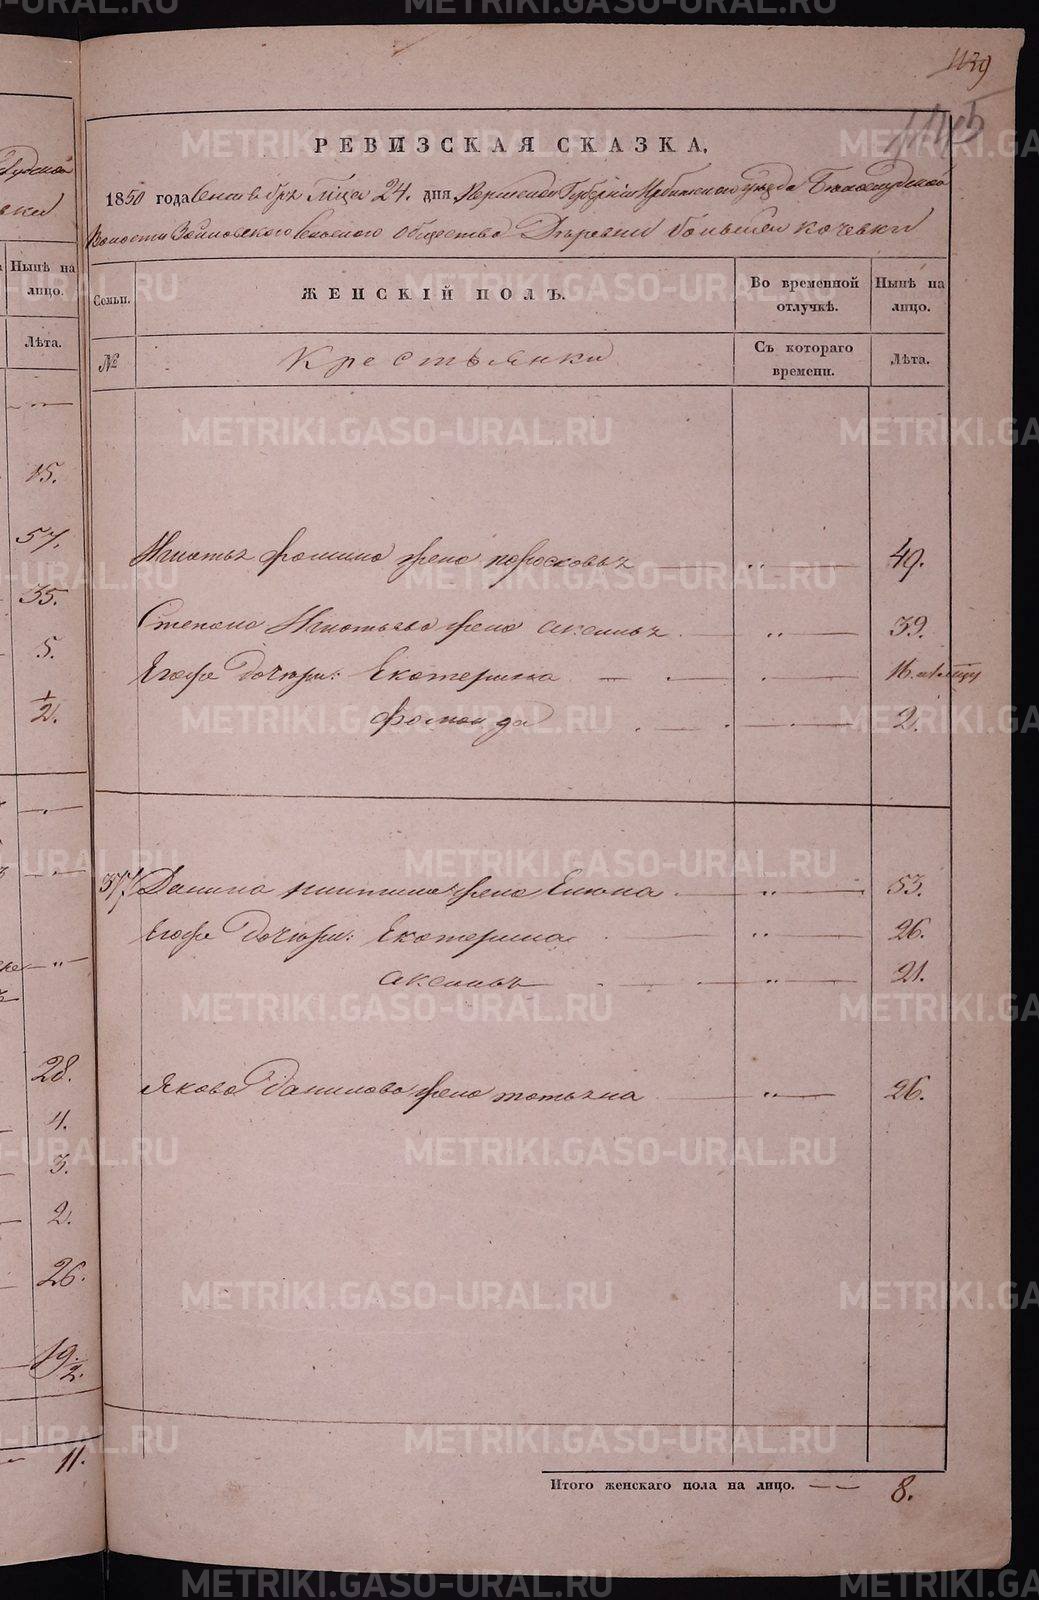 1139
РЕВИЗСКАЯ СКАЗКА,
1850 года Сентября м-ца 24. дня, Пермской Губернии Ирбитского уезда Белослудской
волости Зайковского сельского общества Деревни большей кочевки
Семьи.
ЖЕНСКІЙ ПОЛЪ.
Во временной отлучкѣ.
Нынѣ на лицо.
№
Крестьянки
Съ котораго времени.
Лѣта.
Игнатья Фомина жена поросковья — „ — 49.
Степана Игнатьева жена аксинья — „ — 39.
Егоже дочери: Екатерина — 16
2.
37. Данила жена Елена — „ — 53.
Егоже дочери: Екатерина — „ — 26.
аксинья — „ — 21.
Якова Данилова жена татьяна — „ — 26.
Итого женскаго пола на лицо. — — 8.
Нынѣ на лицо.
Лѣта.
15.
57.
35.
5.
1/2.
28.
4.
3.
2.
26.
19/2.
11.
METRIKI.GASO-URAL.RU